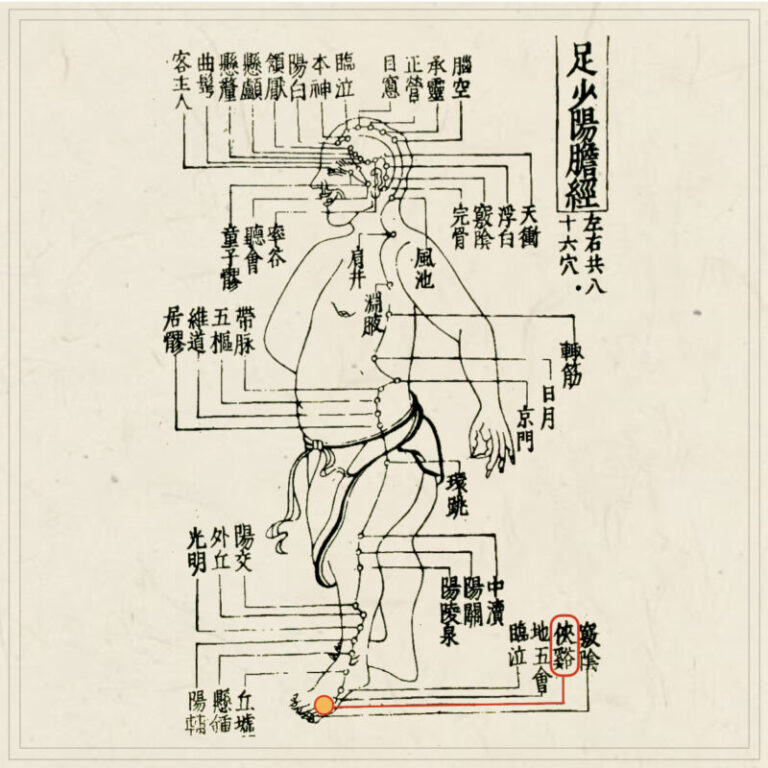 足少陽膽經
左右共八
十六穴.
腦空
承靈
正營
目窻
臨泣
本神
陽白
頷厭
懸顱
懸釐
曲鬢
客主人
天衝
浮白
竅陰
完骨
風池
肩井
率谷
聽會
童子髎
淵腋
輒筋
日月
京門
帶脉
五樞
維道
居髎
環跳
中瀆
陽關
陽陵泉
陽交
外丘
光明
竅陰
俠谿
地五會
臨泣
丘墟
懸
陽輔